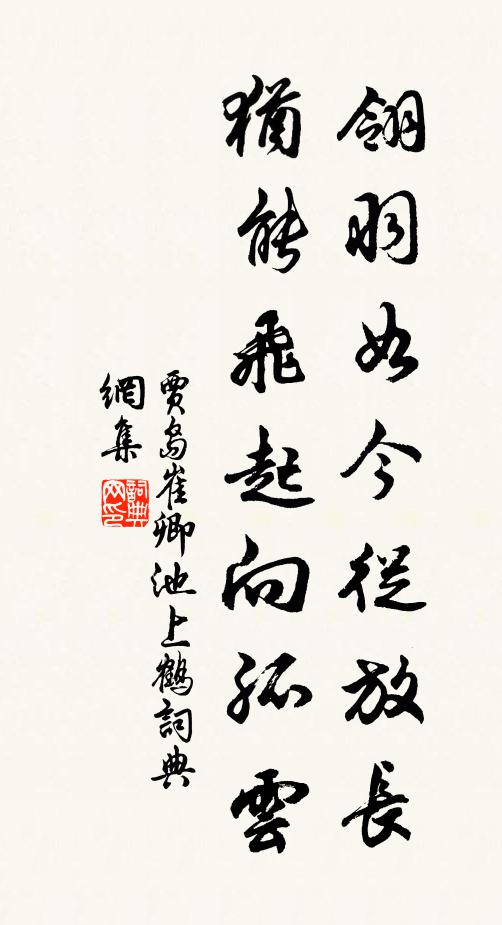 翎羽如今從放長
猶能飛起向孤雲
賈島崔卿池上鶴詞典
網集
詞典網印